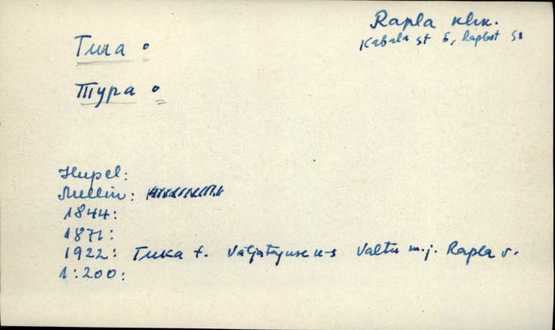 Rapla khk.
Kabala st 5, Raplast 5
Tura
Тура
Hupel:
Mellin:
1844:
1871:
1922: Tuka t. Valjataguse k-s Valtu m.j. Rapla v.
1:200: